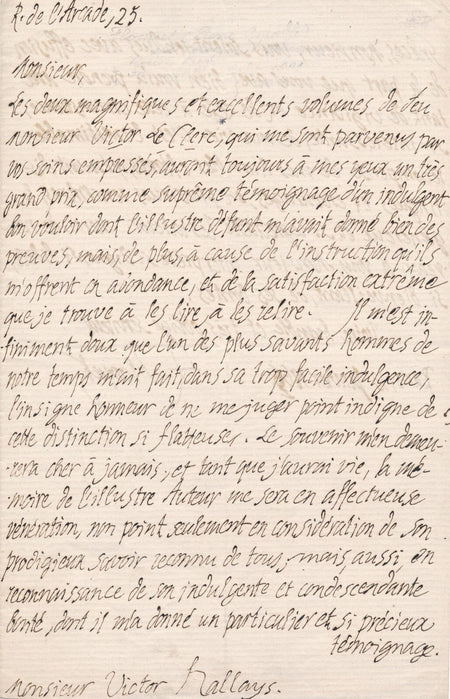 R. de l'Arcade, 25.
Monsieur,
Les deux magnifiques et excellents volumes de feu
Monsieur Victor Le Clerc, qui me sont parvenus par
vos soins empressés, auront toujours à mes yeux un très
grand prix, comme suprême témoignage d'un indulgent
bon vouloir dont l'illustre défunt m'avait donné bien des
preuves, mais de plus, à cause de l'instruction qu'ils
m'offrent en abondance, et de la satisfaction extrême
que je trouve à les lire, à les relire. Il m'est in-
finiment doux que l'un des plus savants hommes de
notre temps m'ait fait, dans sa trop facile indulgence,
l'insigne honneur de ne me juger point indigne de
cette distinction si flatteuse. Le souvenir m'en demeu-
-rera cher à jamais, et tant que j'aurai vie, la mé-
-moire de l'illustre Auteur me sera en affectueuse
vénération, non point seulement en considération de son
prodigieux savoir reconnu de tous, mais aussi, en
reconnaissance de son indulgente et condescendante
bonté, dont il m'a donné un particulier et si précieux
témoignage.
Monsieur Victor Hallays.